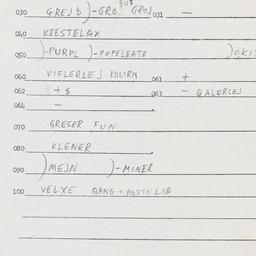 BUT
030 GREJ $ )-GRO GROJ 031 —
040 KRESTELAX
050 )-PURPL )-POPELBATE )OKI
060 VIFLERLEJ KOLIRN 061 +
062 + $ 063 — GALERLEJ
064 —
070 GRESER FUN
080 KLENER
090 )MEJN )-MINER
100 VELXE QANG < POSTE LIB